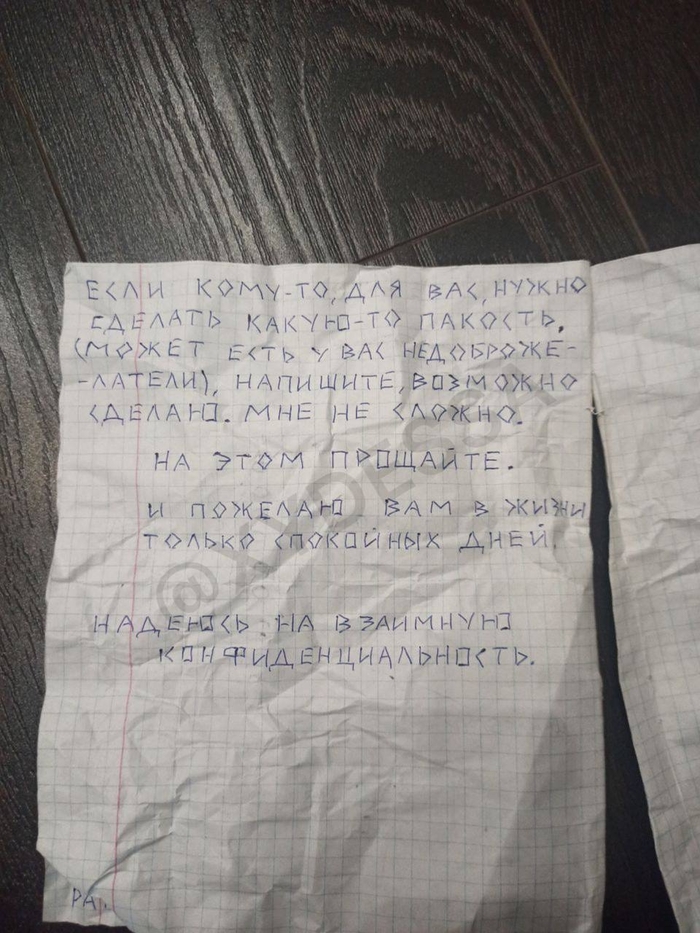 ЕСЛИ КОМУ-ТО, ДЛЯ ВАС, НУЖНО
СДЕЛАТЬ КАКУЮ-ТО ПАКОСТЬ,
(МОЖЕТ ЕСТЬ У ВАС НЕДОБРОЖЕ-
-ЛАТЕЛИ), НАПИШИТЕ, ВОЗМОЖНО
СДЕЛАЮ. МНЕ НЕ СЛОЖНО.
НА ЭТОМ ПРОЩАЙТЕ.
И ПОЖЕЛАЮ ВАМ В ЖИЗНИ
ТОЛЬКО СПОКОЙНЫХ ДНЕЙ.
НАДЕЮСЬ НА ВЗАИМНУЮ
КОНФИДЕНЦИАЛЬНОСТЬ.
РА.